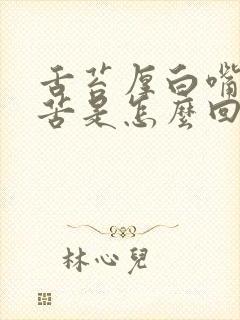 舌苔厚白嘴
苦是怎麼回
林心兒